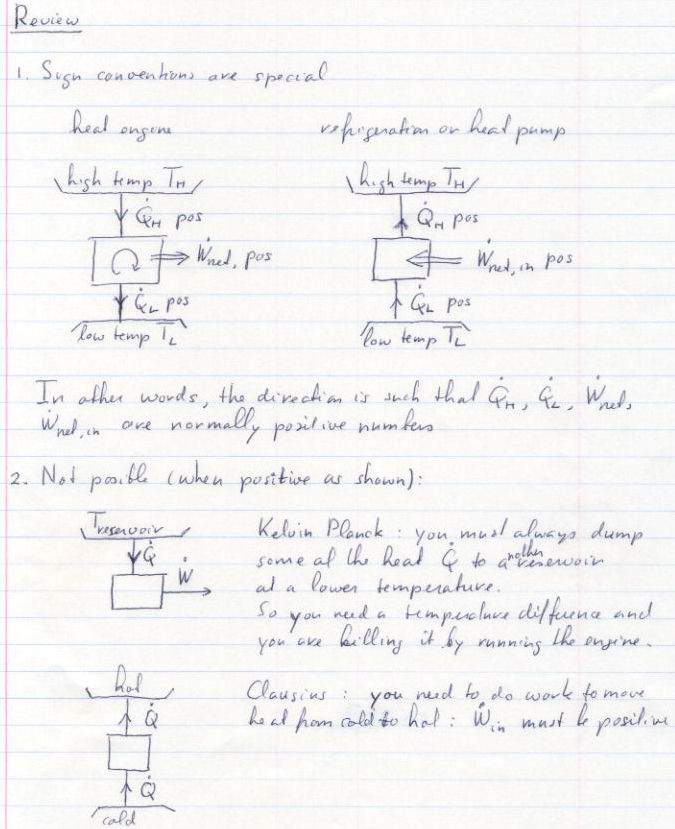 Review
1. Sign conventions are special
heat engine
refrigeration or heat pump
high temp T_H
Q̇_H pos
Ẇ_net, pos
Q̇_L pos
low temp T_L
high temp T_H
Q̇_H pos
Ẇ_net, in pos
Q̇_L pos
low temp T_L
In other words, the direction is such that Q̇_H, Q̇_L, Ẇ_net,
Ẇ_net, in are normally positive numbers
2. Not posible (when positive as shown):
T_reservoir
Q̇
Ẇ
Kelvin Planck : you must always dump
some of the heat Q̇ to another reservoir
at a lower temperature.
So you need a temperature difference and
you are killing it by running the engine.
hot
Q̇
Q̇
cold
Clausius : you need to do work to move
heat from cold to hot : Ẇ_in must be positive